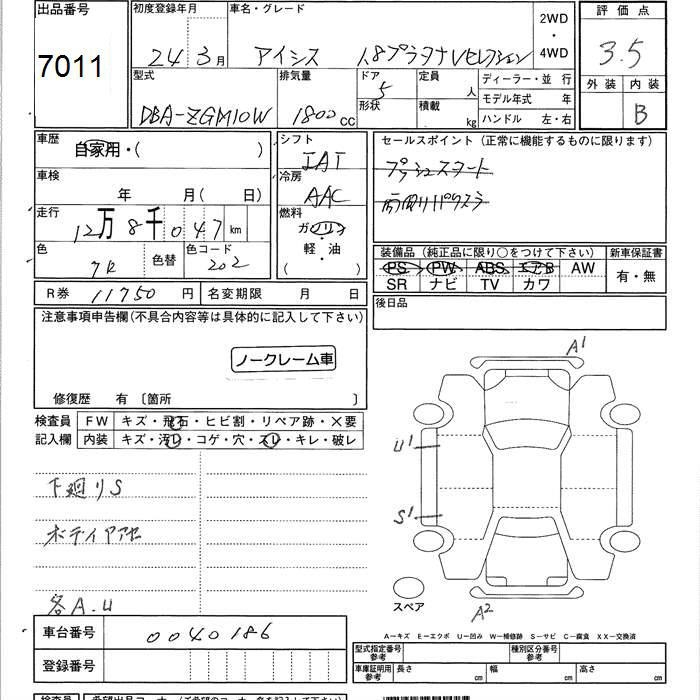 出品番号 初度登録年月 車名・グレード 2WD・4WD 評価点
7011 24 3月 アイシス 1.8プラタナVセレクション 3.5
型式 排気量 ドア 定員 人 ディーラー・並行 外装 内装
DBA-ZGM10W 1800cc 5 形状 積載 kg モデル年式 年 B
ハンドル 左・右
車歴 自家用・( ) シフト IAT セールスポイント (正常に機能するものに限ります)
プッシュスタート
車検 年 月( 日) 冷房 AAC
走行 12万8千047km 燃料 ガソリン・軽・油 ( )
色 色替 色コード 202
装備品 (純正品に限り○をつけて下さい) 新車保証書
PS PW ABS エアB AW 有・無
SR ナビ TV カワ
R券 11750円 名変期限 月 日 後日品
注意事項申告欄(不具合内容等は具体的に記入して下さい)
ノークレーム車
修復歴 有 〔箇所 〕
検査員 FW キズ・飛石・ヒビ割・リペア跡・×要
記入欄 内装 キズ・汚レ・コゲ・穴・スレ・キレ・破レ
A1
U1
下廻りS
S1
ボディアセ
各A.U
スペア
A2
A−キズ E−エクボ U−凹み W−補修跡 S−サビ C−腐食 XX−交換済
車台番号 0040186
型式指定番号 参考 種別区分番号 参考
登録番号 車庫証明用 参考 長さ cm 幅 cm 高さ cm